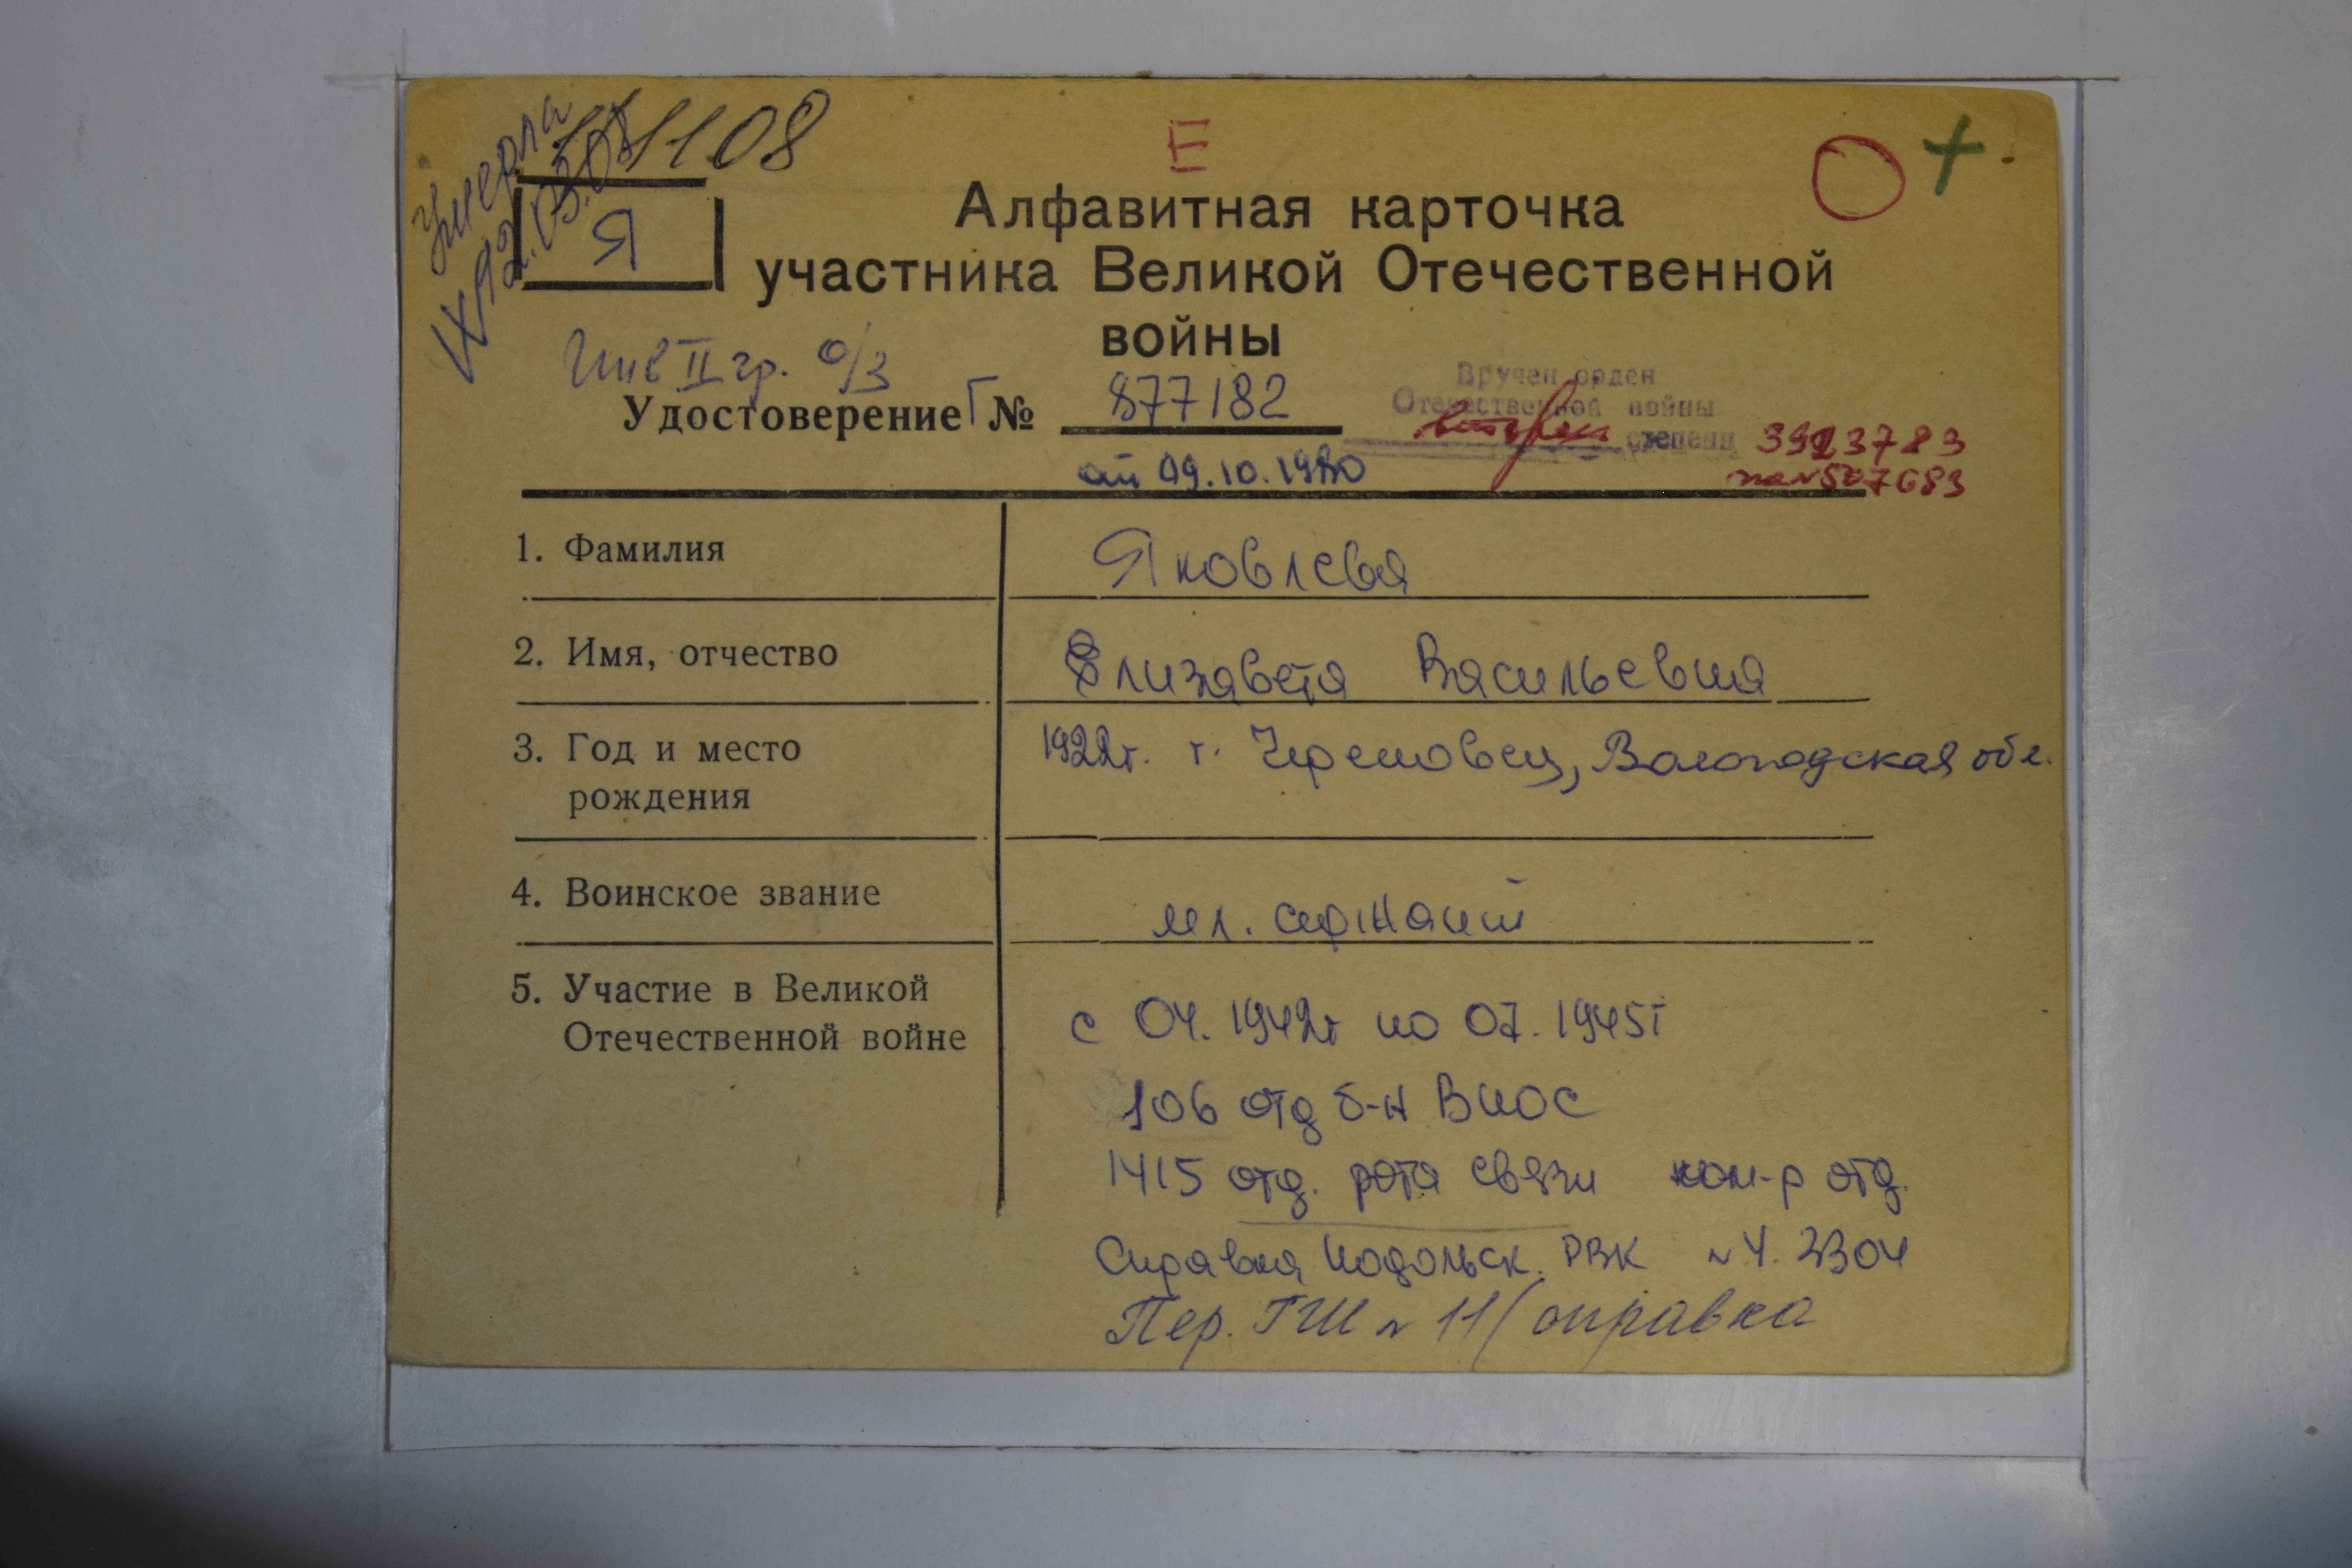 Умерла
IX-92.03.08
111108
Е
+
Я
Алфавитная карточка
участника Великой Отечественной
войны
Инв II гр. о/з
Удостоверение Г № 877182
Вручен орден
Отечественной войны
второй степени 3923783
от 09.10.1980
507683
1. Фамилия Яковлева
2. Имя, отчество Елизавета Васильевна
3. Год и место 1922г. г. Череповец, Вологодская обл.
рождения
4. Воинское звание мл. сержант
5. Участие в Великой с 04.1942г по 07.1945г
Отечественной войне
106 отд б-н ВНОС
1415 отд. рота связи ком-р отд.
Справка Подольск. РВК №4.2304
Пер. ГШ № 11/справка